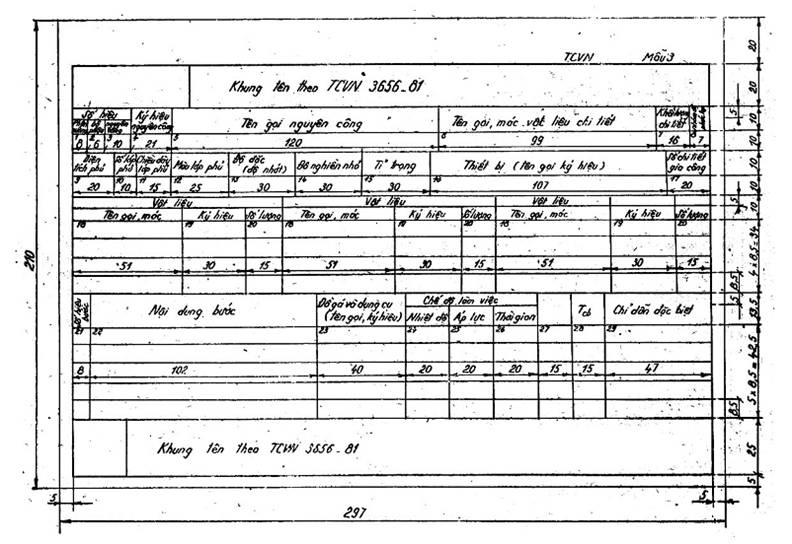 TCVN Mẫu 3
Khung tên theo TCVN 3656-81
Số hiệu
Ký hiệu nguyên công
Tên gọi nguyên công
Tên gọi, mác vật liệu chi tiết
Khối lượng chi tiết
1 2 3 4 5 6 7
8 6 10 21 120 99 16
Diện tích phủ
Số lớp phủ
Chiều dày lớp phủ
Màu lớp phủ
Độ đặc (độ nhớt)
Độ nghiền nhỏ
Tỉ trọng
Thiết bị (tên gọi ký hiệu)
Số chi tiết gia công
9 10 11 12 13 14 15 16 17
20 10 15 25 30 30 30 107 20
Vật liệu Vật liệu Vật liệu
Tên gọi, mác Ký hiệu Số lượng Tên gọi, mác Ký hiệu Số lượng Tên gọi, mác Ký hiệu Số lượng
18 19 20 18 19 20 18 19 20
51 30 15 51 30 15 51 30 15
Nội dung bước
Đồ gá và dụng cụ (tên gọi, ký hiệu)
Chế độ làm việc
Nhiệt độ Áp lực Thời gian
Tcb
Chỉ dẫn đặc biệt
21 22 23 24 25 26 27 28 29
8 102 40 20 20 20 15 15 47
Khung tên theo TCVN 3656-81
5 5
297
210
20
20
5
10 10 10 10 10
5
4 x 8,5 = 34
8,5
5
13,5
5 x 8,5 = 42,5
8,5
25
5